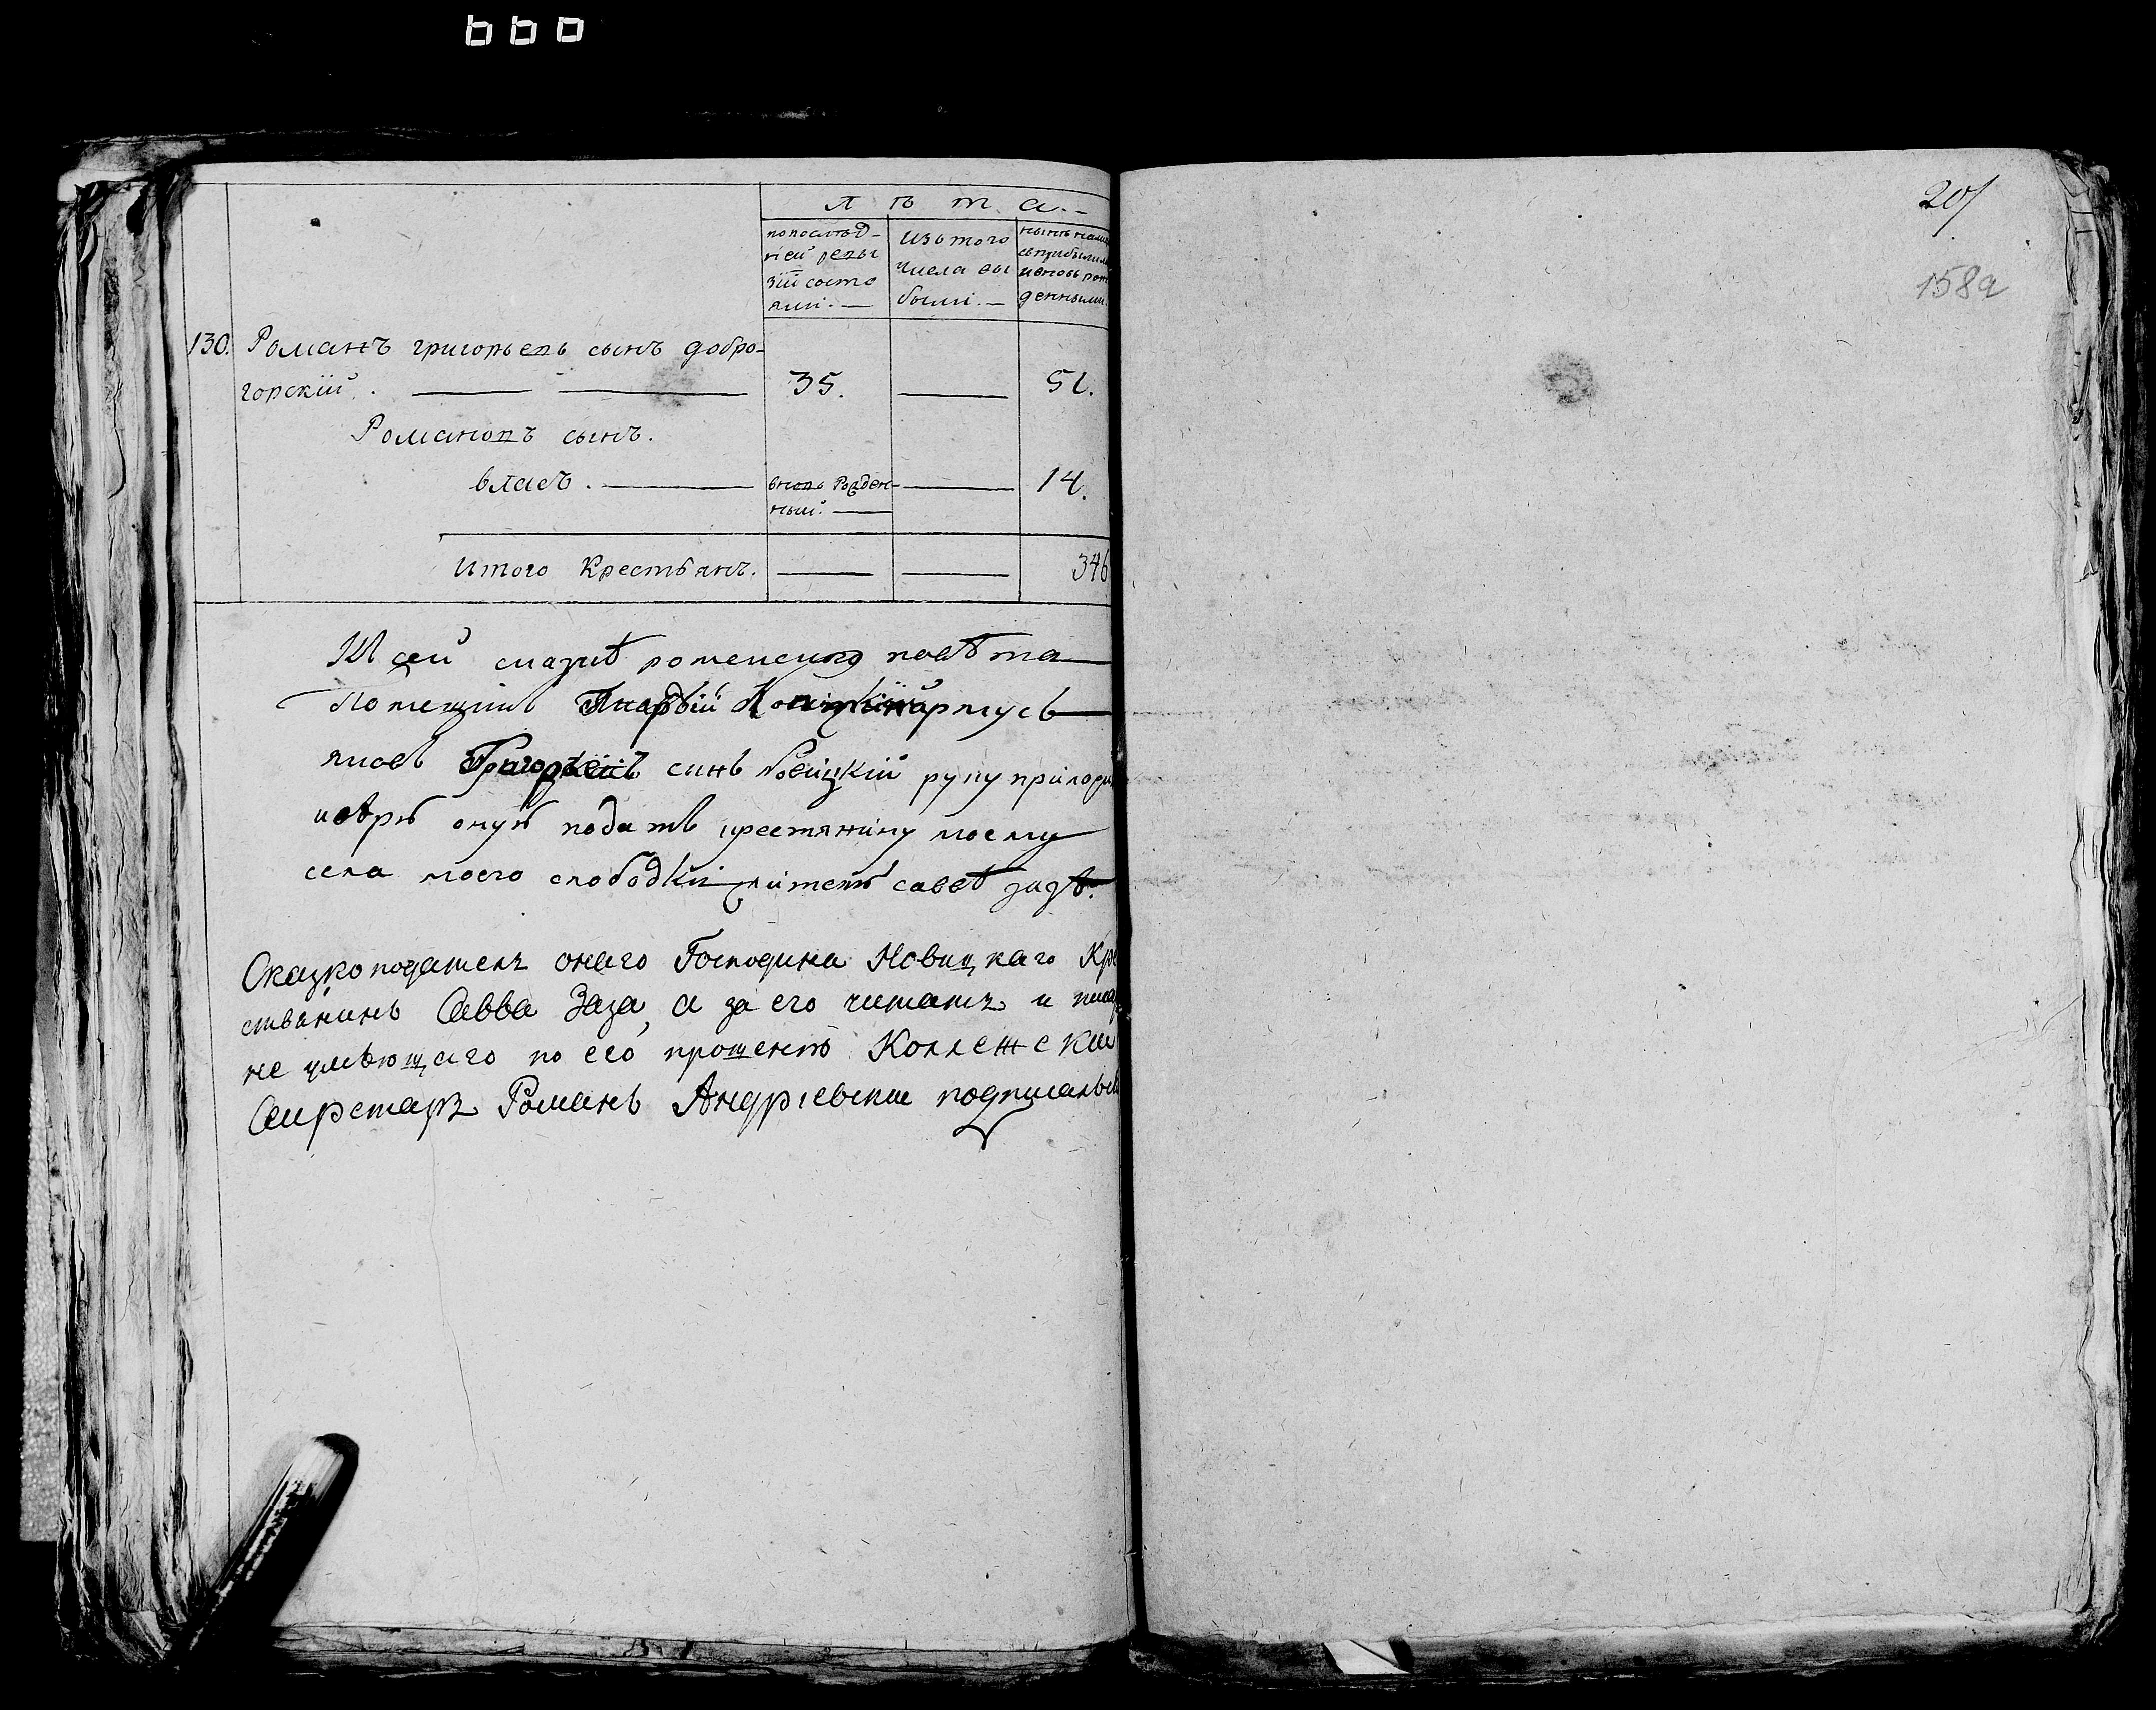 660
Л ѣ т а.
по послѣд-
ней реви
зіи состо
яли.
Изъ того
числа вы
были.
нынѣ на лицо
съ прибылыми
и вновь рож
денными.
130. Романъ григорьевъ сынъ добро-
горскій. 35. 51.
Романовъ сынъ.
власъ. вновь Рожден- 14.
ный.
Итого Крестьянъ. 346
К сей сказкѣ роменского повѣта
помещикъ
синъ Новицкій руку приложилъ
подать крестянину моему
села моего слободки
Сказкоподатель онаго Господина Новицкаго Кре
стьянинъ Савва Заза, а за его читать и писать
не умѣющаго по его прошенію Коллежски
Секретарь Романъ Андріевски подписалься
201
158а